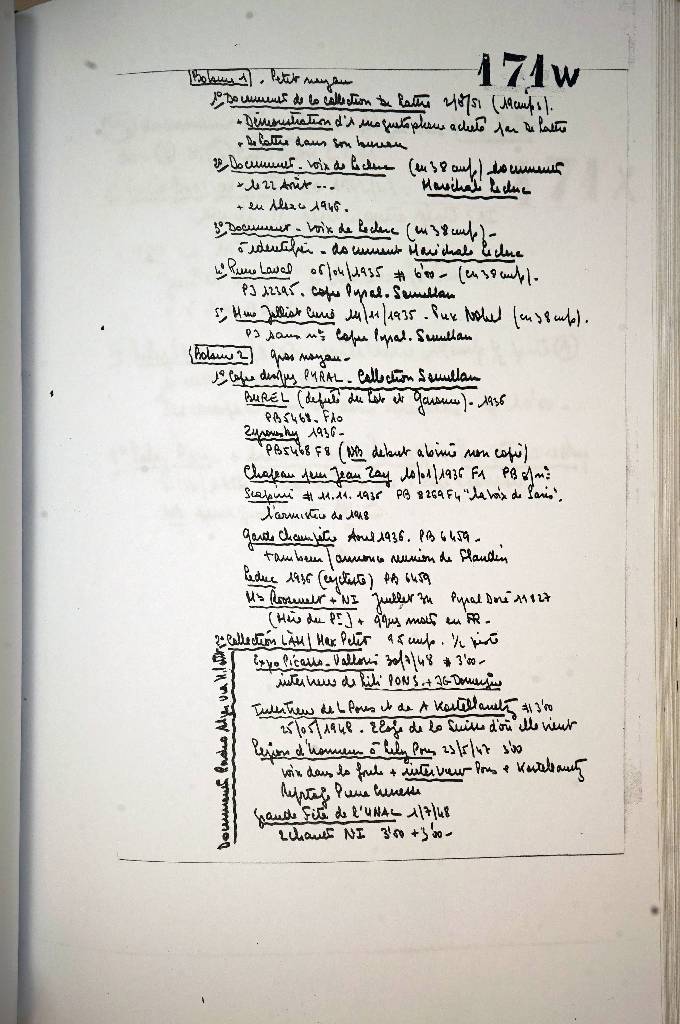 171w
Bobine 1. Petit noyau
1° Document de la collection De Lattre 2/8/51 (19 cm/s).
+ Démonstration d'1 magnétophone acheté par De Lattre
+ De Lattre dans son bureau
2° Document - Voix de Leclerc (en 38 cm/s) document
+ le 22 Août --- Maréchale Leclerc
+ en Alsace 1945.
3° Document - Voix de Leclerc (en 38 cm/s) -
à identifier - document Maréchale Leclerc
4° Pierre Laval 06/04/1935 # 6'00 - (en 38 cm/s).
PJ 12395. Copie Pyral. Semullan
5° Mme Jolliot Curie 14/11/1935 - Prix Nobel (en 38 cm/s).
PJ sans n°: Copie Pyral. Semullan
Bobine 2 gros noyau -
1° Copie disques PYRAL - Collection Semullan
BUREL (député du Lot et Garonne) - 1936
PB 5468. F10
Zyromsky 1936 -
PB 5468 F8 (NB début abimé non copié)
Chapeau pour Jean Zay 10/01/1936 F1 PB s/n°
Scapini # 11.11.1936 PB 8269 F4 "la Voix de Paris".
l'armistice de 1918
Garde Champêtre Avril 1936. PB 6459 -
tambour / annonce réunion de Flandin
Leduc 1936 (cycliste) PB 6459
Ms Roosevelt + NI Juillet 34 Pyral Doré 11827
(Mère du Pt) + qques mots en FR -
2° Collection LAM / Max Petit 9,5 cm/s. 1/2 piste
Expo Picasso - Vallauris 30/7/48 # 3'00 -
interview de Lili PONS + JG Domergue
Interview de L Pons et de A Kostelanetz # 3'00
25/05/1948. Eloge de la Suisse d'où elle vient
Légion d'honneur à Lily Pons 23/5/47 3'00
Voix dans la foule + interview Pons & Kostelanetz
Reportage Pierre
Grande Fête de l'UNAC 1/7/48
2 chants NI 3'00 + 3'00 -
Document Radio